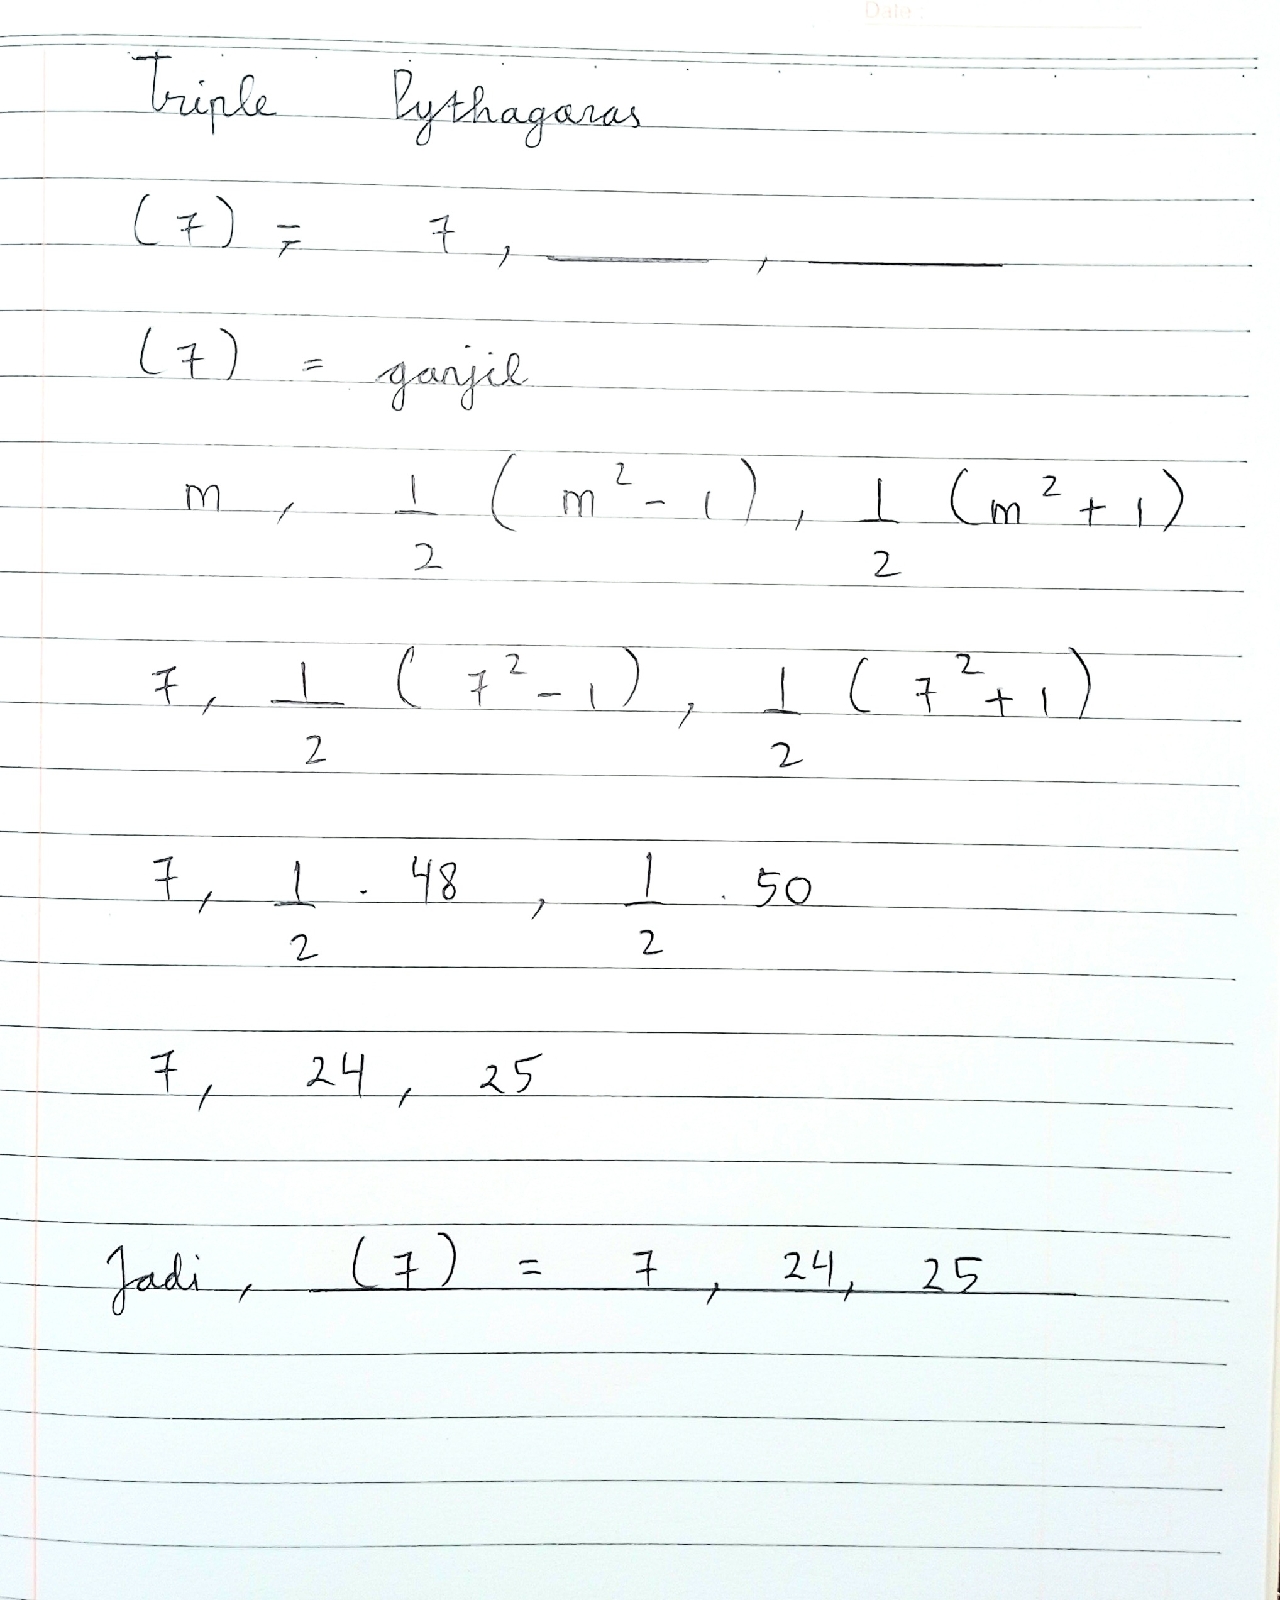 Date
Triple Pythagoras
(7) = 7, ____, ____
(7) = ganjil
m, 1/2 (m² - 1), 1/2 (m² + 1)
7, 1/2 (7² - 1), 1/2 (7² + 1)
7, 1/2 . 48, 1/2 . 50
7, 24, 25
Jadi, (7) = 7, 24, 25